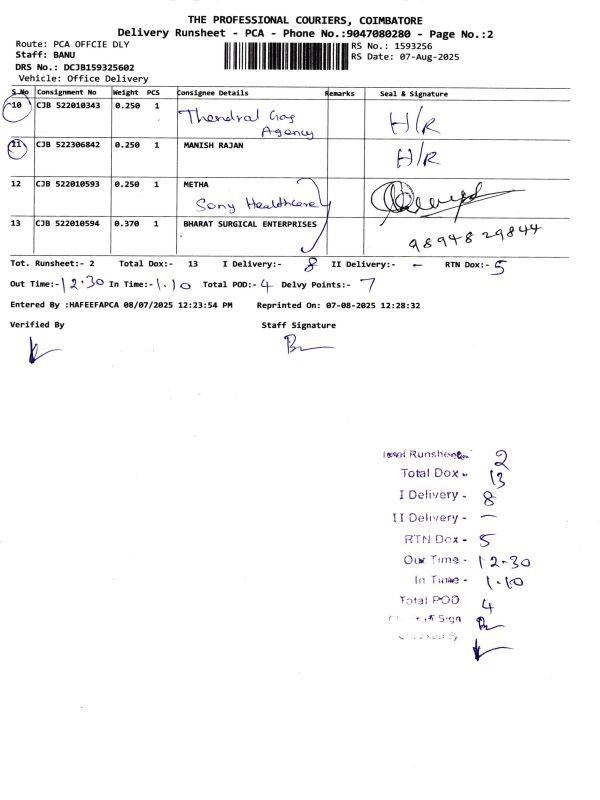 THE PROFESSIONAL COURIERS, COIMBATORE
Delivery Runsheet - PCA - Phone No.:9047080280 - Page No.:2
Route: PCA OFFCIE DLY
RS No.: 1593256
Staff: BANU
RS Date: 07-Aug-2025
DRS No.: DCJB159325602
Vehicle: Office Delivery
S.No Consignment No Weight PCS Consignee Details Remarks Seal & Signature
10 CJB 522010343 0.250 1 Thendral Gas Agency H/R
11 CJB 522306842 0.250 1 MANISH RAJAN H/R
12 CJB 522010593 0.250 1 METHA
Sony Healthcare
13 CJB 522010594 0.370 1 BHARAT SURGICAL ENTERPRISES 9894829844
Tot. Runsheet:- 2 Total Dox:- 13 I Delivery:- 8 II Delivery:- - RTN Dox:- 5
Out Time:- 12.30 In Time:- 1.10 Total POD:- 4 Delvy Points:- 7
Entered By :HAFEEFAPCA 08/07/2025 12:23:54 PM Reprinted On: 07-08-2025 12:28:32
Verified By Staff Signature
Runsheet 2
Total Dox - 13
I Delivery - 8
II Delivery - -
RTN Dox - 5
Out Time - 12.30
In Time - 1.10
Total POD 4
Sign